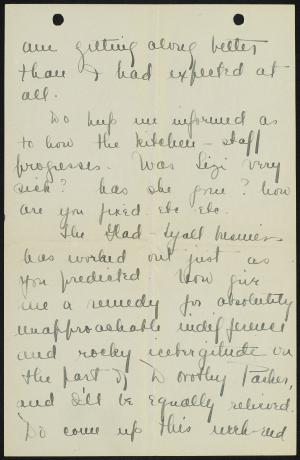 am getting along better
than I had expected at
all.
Do keep me informed as
to how the kitchen-staff
progresses. Was Lizi very
sick? has she gone? how
are you fixed etc etc.
The Glad-Lyall business
has worked out just as
you predicted. Now give
me a remedy for absolutely
unapproachable indifference
and rocky icebergitude on
the part of Dorothy Parker,
and I'll be equally relieved.
Do come up this week-end